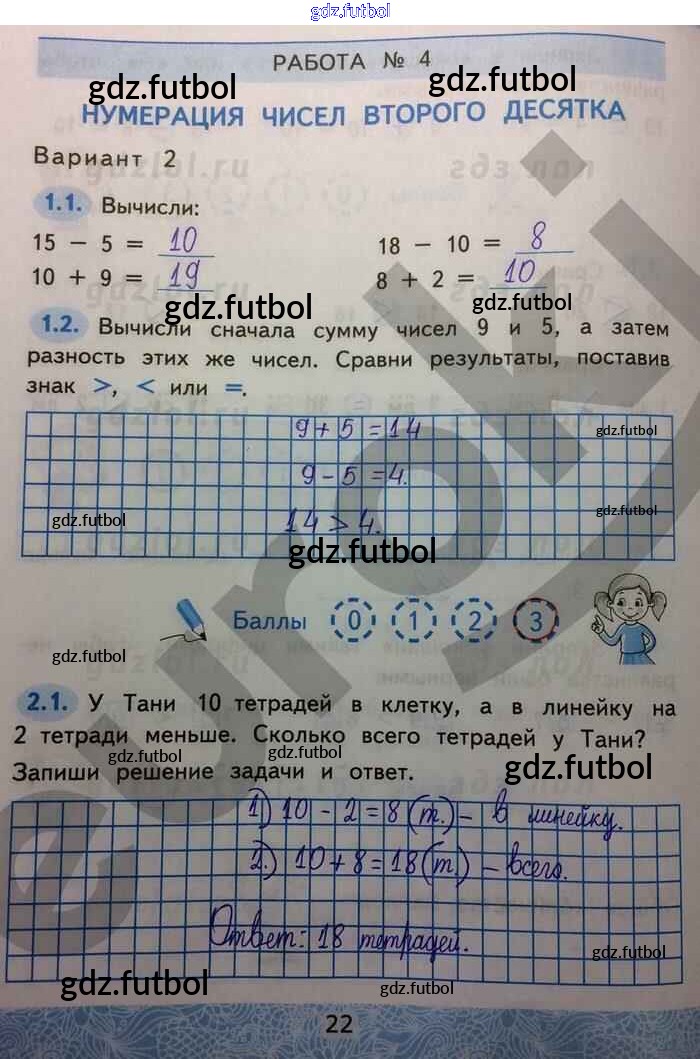 gdz.futbol
РАБОТА № 4
gdz.futbol gdz.futbol
НУМЕРАЦИЯ ЧИСЕЛ ВТОРОГО ДЕСЯТКА
Вариант 2
1.1. Вычисли:
15 − 5 = 10 18 − 10 = 8
10 + 9 = 19 8 + 2 = 10
gdz.futbol gdz.futbol
1.2. Вычисли сначала сумму чисел 9 и 5, а затем
разность этих же чисел. Сравни результаты, поставив
знак >, < или =.
9 + 5 = 14
gdz.futbol
9 − 5 = 4.
gdz.futbol
14 > 4.
gdz.futbol
gdz.futbol
Баллы 0 1 2 3
gdz.futbol
2.1. У Тани 10 тетрадей в клетку, а в линейку на
2 тетради меньше. Сколько всего тетрадей у Тани?
gdz.futbol gdz.futbol gdz.futbol
Запиши решение задачи и ответ.
1) 10 − 2 = 8 (т.) − в линейку.
2.) 10 + 8 = 18 (т.) − всего.
Ответ: 18 тетрадей.
gdz.futbol
gdz.futbol gdz.futbol
22
gdz.futbol gdz.futbol
euroki